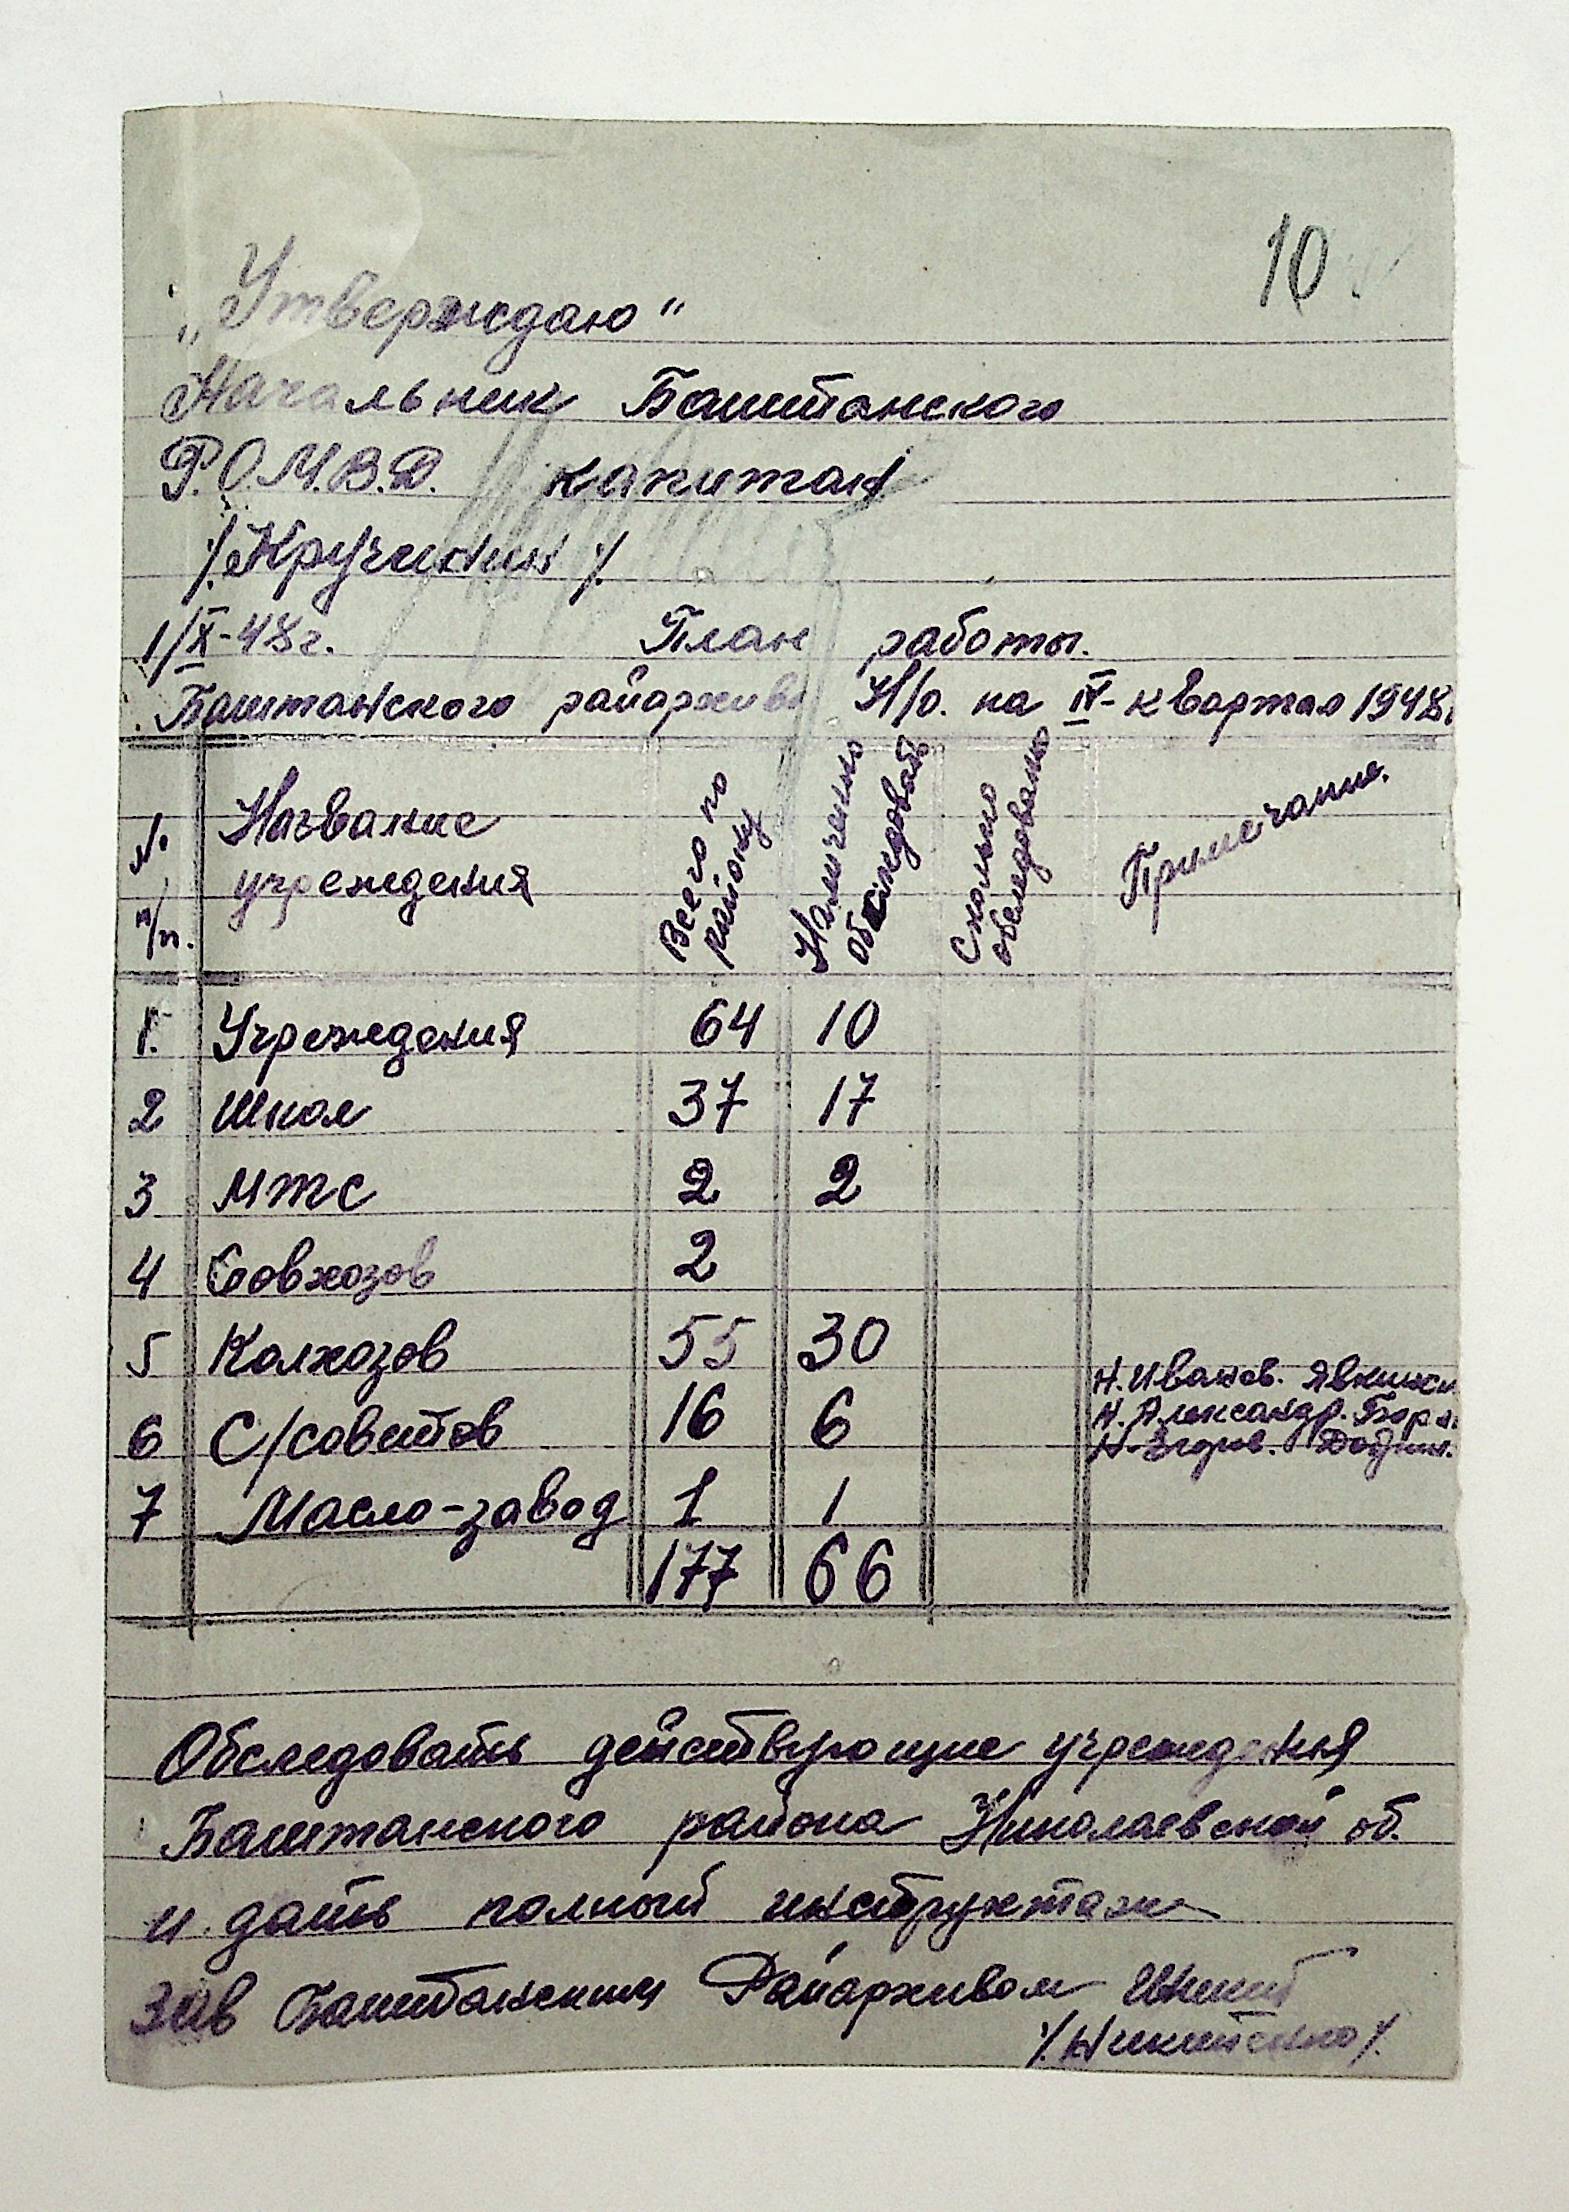 10.
„Утверждаю"
Начальник Баштанского
Р.О.М.В.Д. капитан
/.Кручинин/.
1/IX-48г. План работы.
Баштанского райархива Н/о. на IV-квартал 1948г
№ п/п. Название учреждения Всего по району Намечено обследовать Сколько обследовано Примечание.
1. Учреждения 64 10
2 Школ 37 17
3 МТС 2 2
4 Совхозов 2
5 Колхозов 55 30
Н.Иванов. Явкинск
6 С/советов 16 6 Н.Александр.
Н-Егоров.
7 Масло-завод 1 1
177 66
Обследовать действующие учреждения
Баштанского района Николаевской об.
и дать полный инструктаж
Зав Баштанским Райархивом
/.Никитенко/.